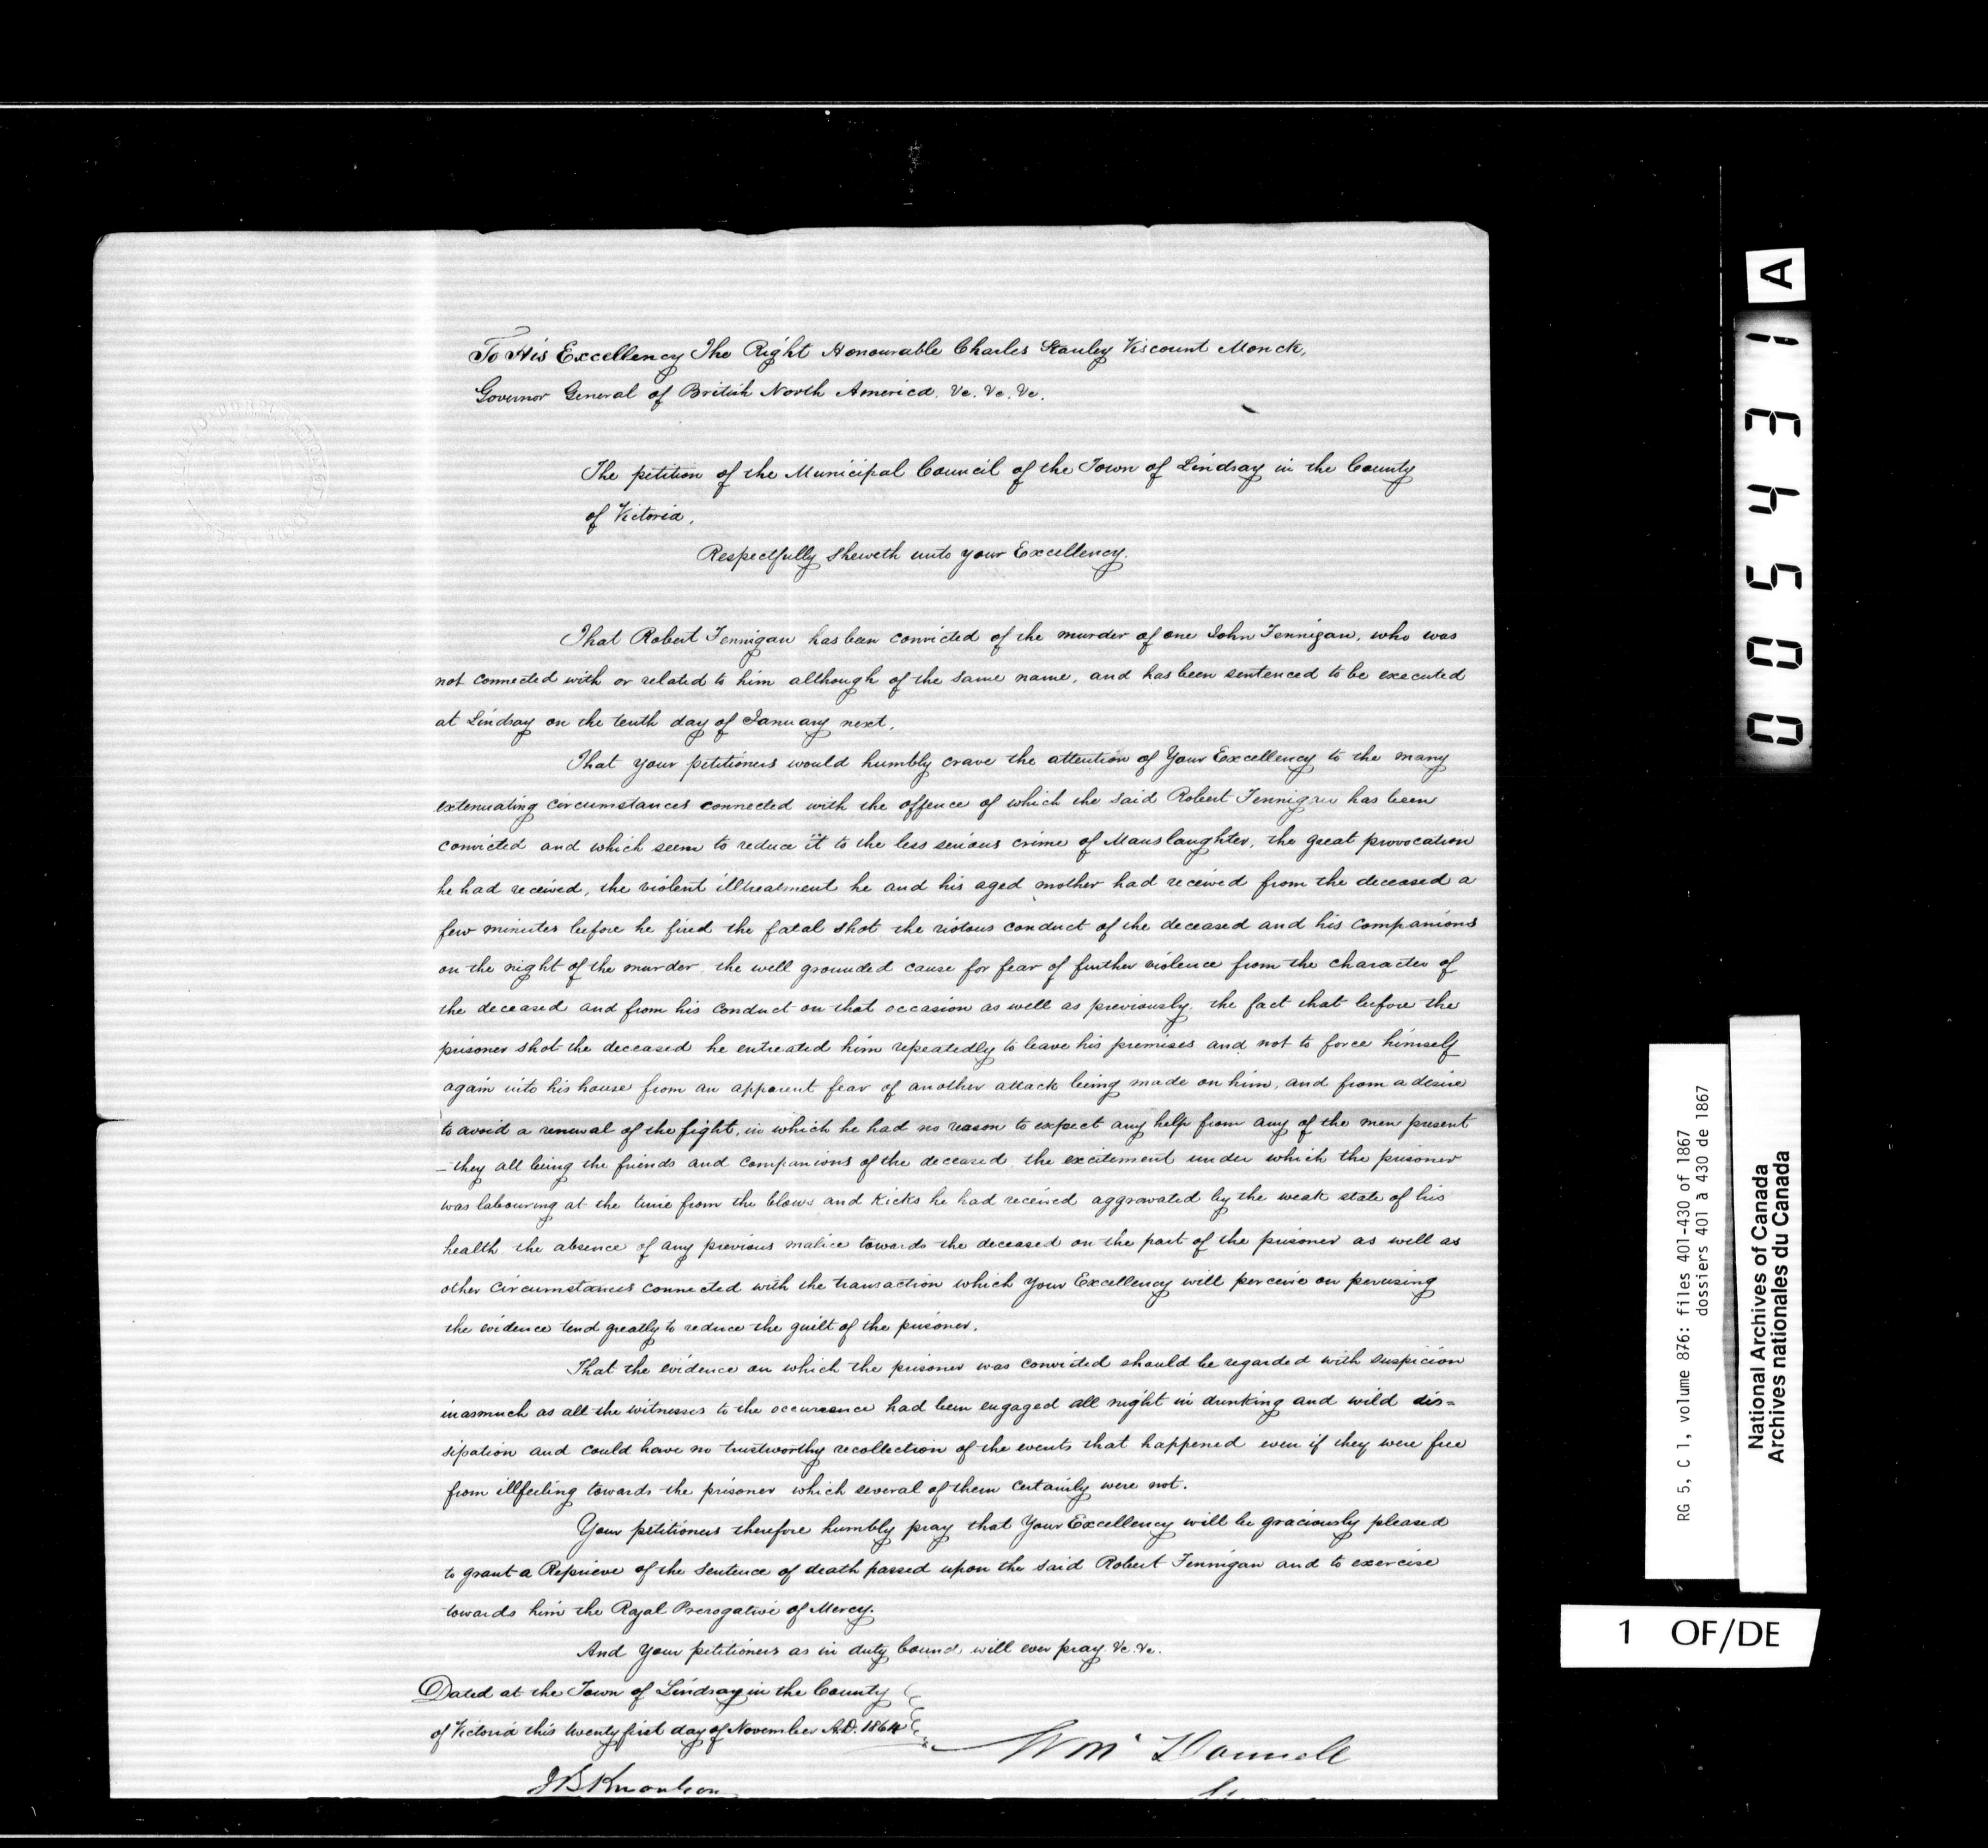 To His Excellency The Right Honourable Charles Stanley Viscount Monck,
Governor General of British North America. &c. &c. &c.
The petition of the Municipal Council of the Town of Lindsay in the County
of Victoria,
Respectfully sheweth unto your Excellency.
That Robert Fennigan has been convicted of the murder of one John Fennigan, who was
not connected with or related to him although of the same name, and has been sentenced to be executed
at Lindsay on the tenth day of January next,
That your petitioners would humbly crave the attention of Your Excellency to the many
extenuating circumstances connected with the offence of which the said Robert Fennigan has been
convicted and which seem to reduce it to the less serious crime of Manslaughter, the great provocation
he had received, the violent illtreatment he and his aged mother had received from the deceased a
few minutes before he fired the fatal shot, the riotous conduct of the deceased and his companions
on the night of the murder, the well grounded cause for fear of further violence from the character of
the deceased and from his conduct on that occasion as well as previously, the fact that before the
prisoner shot the deceased he entreated him repeatedly to leave his premises and not to force himself
again into his house from an apparent fear of another attack being made on him, and from a desire
to avoid a renewal of the fight, in which he had no reason to expect any help from any of the men present
– they all being the friends and companions of the deceased, the excitement under which the prisoner
was labouring at the time from the blows and kicks he had received aggravated by the weak state of his
health, the absence of any previous malice towards the deceased on the part of the prisoner as well as
other circumstances connected with the transaction which Your Excellency will perceive on perusing
the evidence tend greatly to reduce the guilt of the prisoner.
That the evidence on which the prisoner was convicted should be regarded with suspicion
inasmuch as all the witnesses to the occurence had been engaged all night in drinking and wild dis=
sipation and could have no trustworthy recollection of the events that happened even if they were free
from illfeeling towards the prisoner which several of them certainly were not.
Your petitioners therefore humbly pray that Your Excellency will be graciously pleased
to grant a Reprieve of the Sentence of death passed upon the said Robert Fennigan and to exercise
towards him the Royal Prerogative of Mercy.
And Your petitioners as in duty bound will ever pray &c. &c.
Dated at the Town of Lindsay in the County
of Victoria this twenty first day of November A.D. 1864
Wm Donnell
J B Knowlson
A
005431
RG 5, C 1, volume 876: files 401-430 of 1867
dossiers 401 à 430 de 1867
National Archives of Canada
Archives nationales du Canada
1 OF/DE